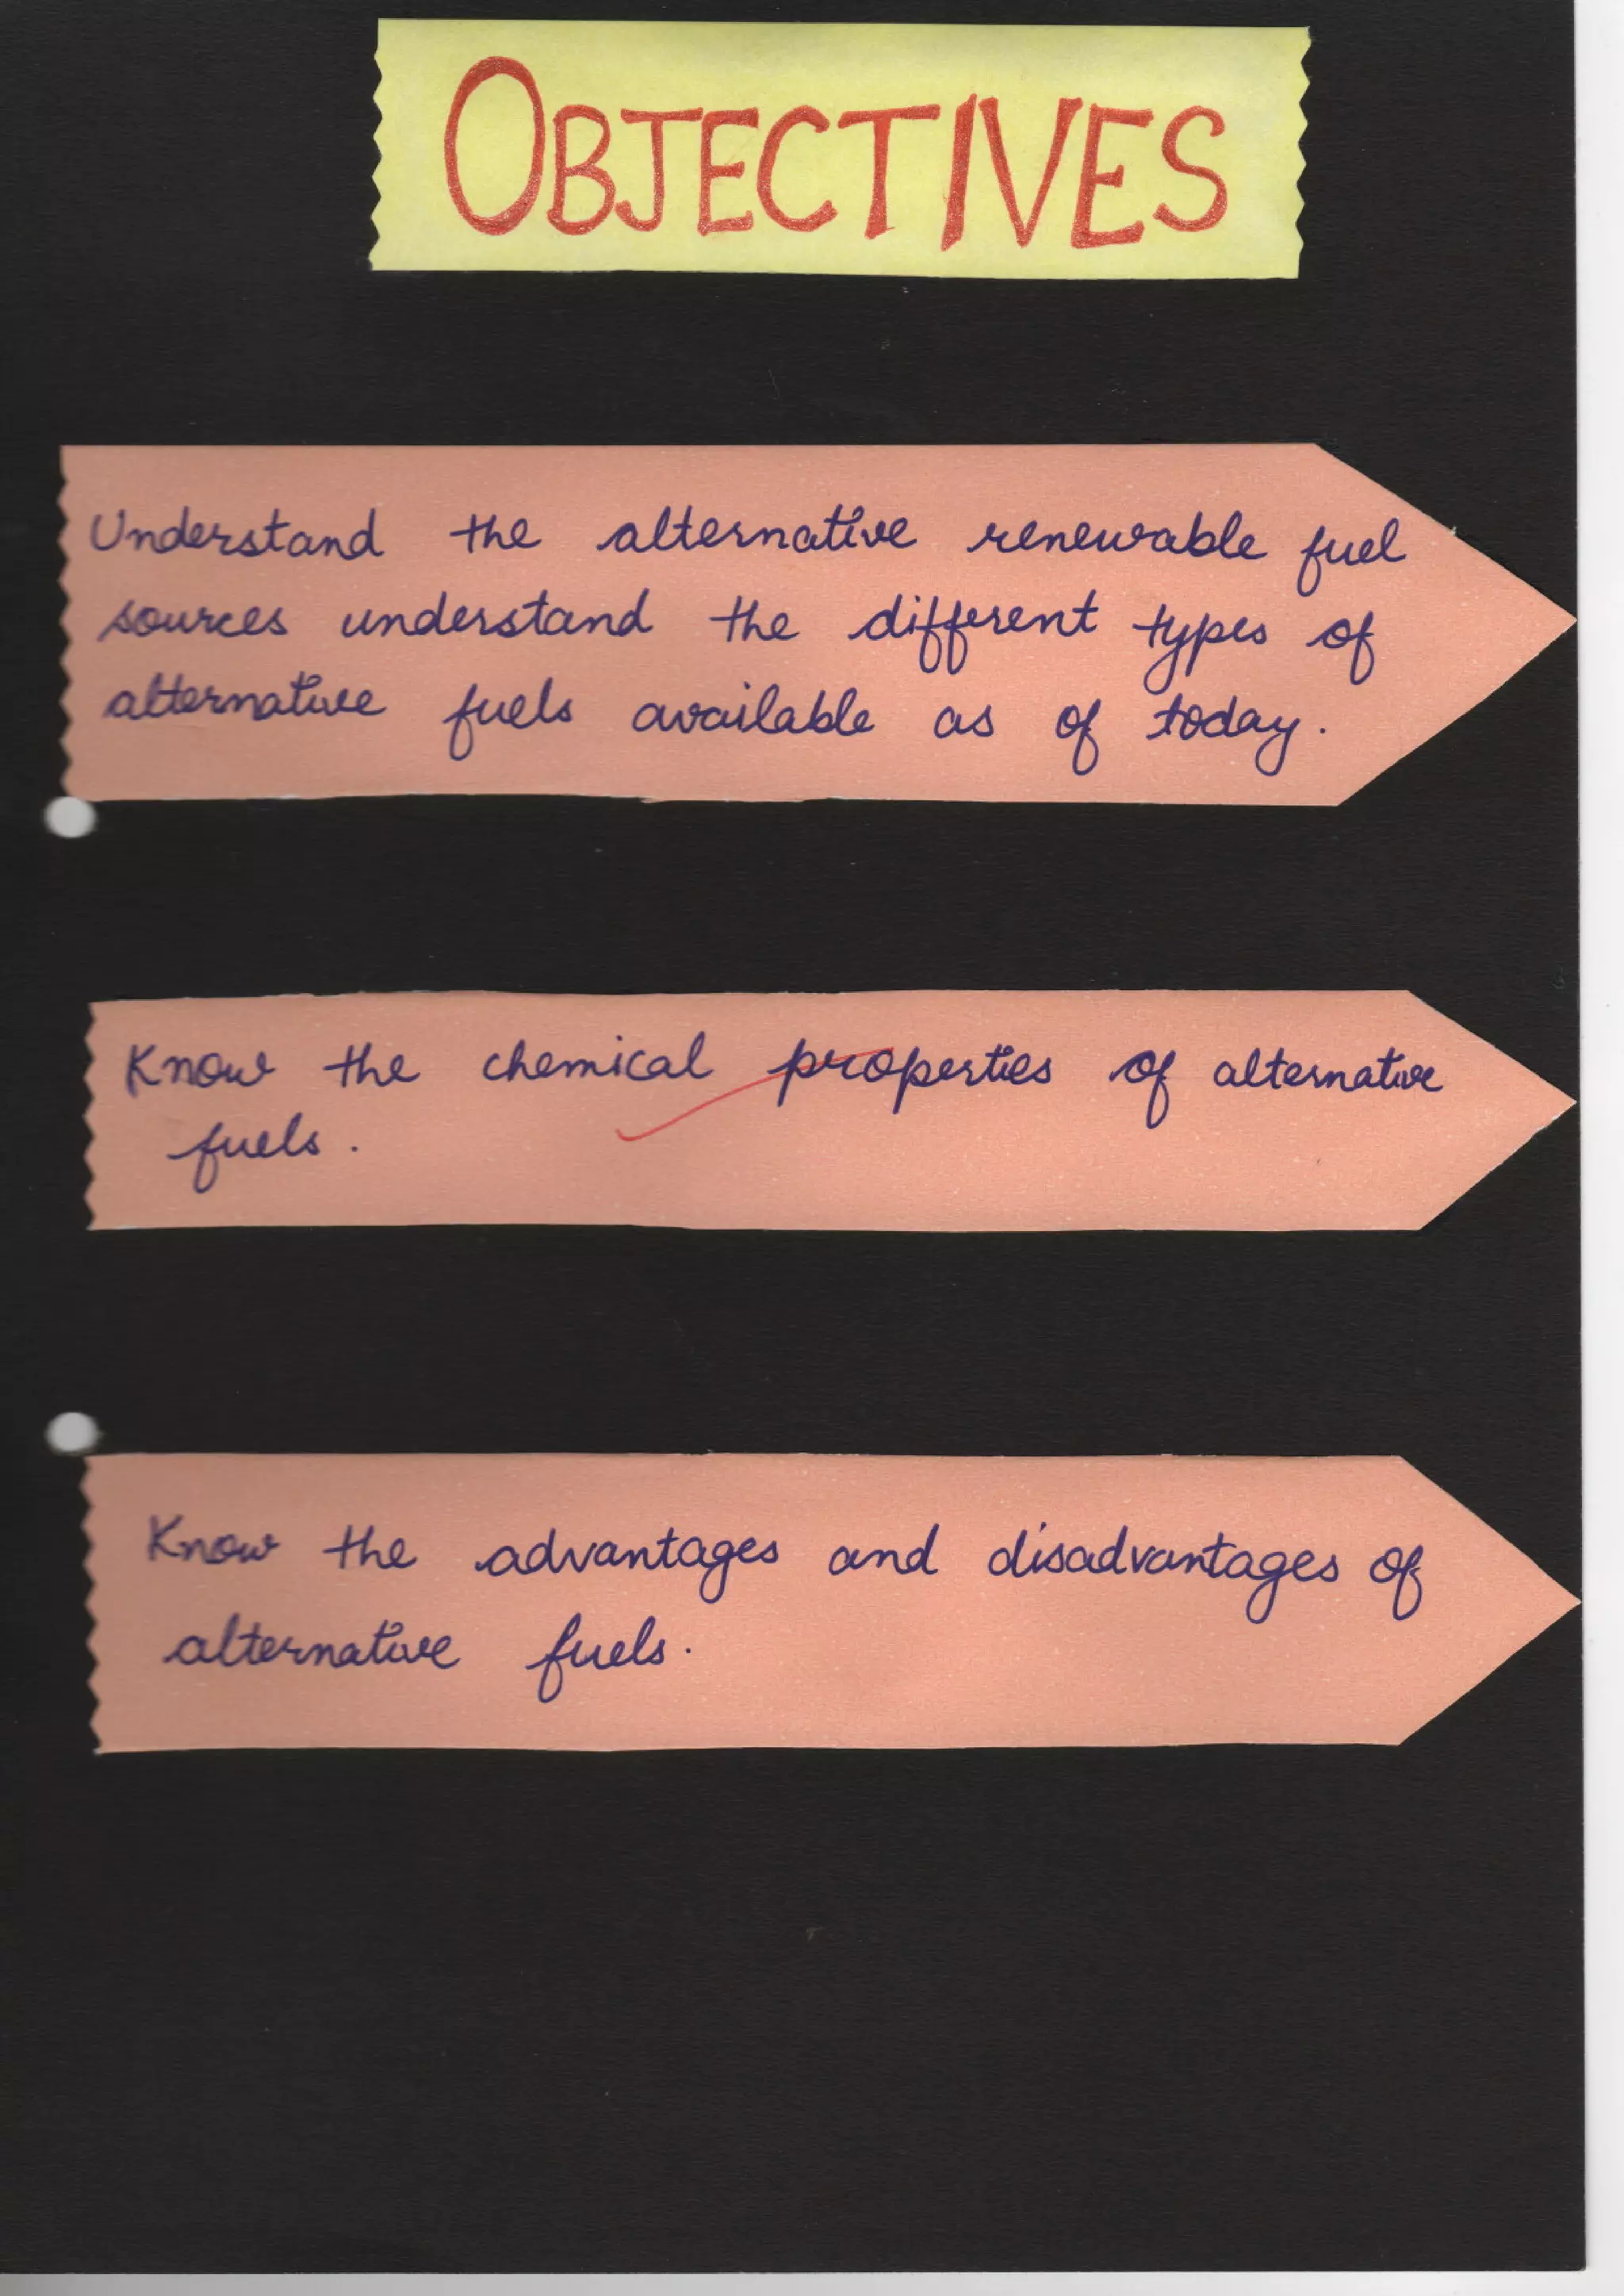 OBJECTIVES
Understand the alternative renewable fuel
sources understand the different types of
alternative fuels available as of today.
Know the chemical properties of alternative
fuels.
Know the advantages and disadvantages of
alternative fuels.